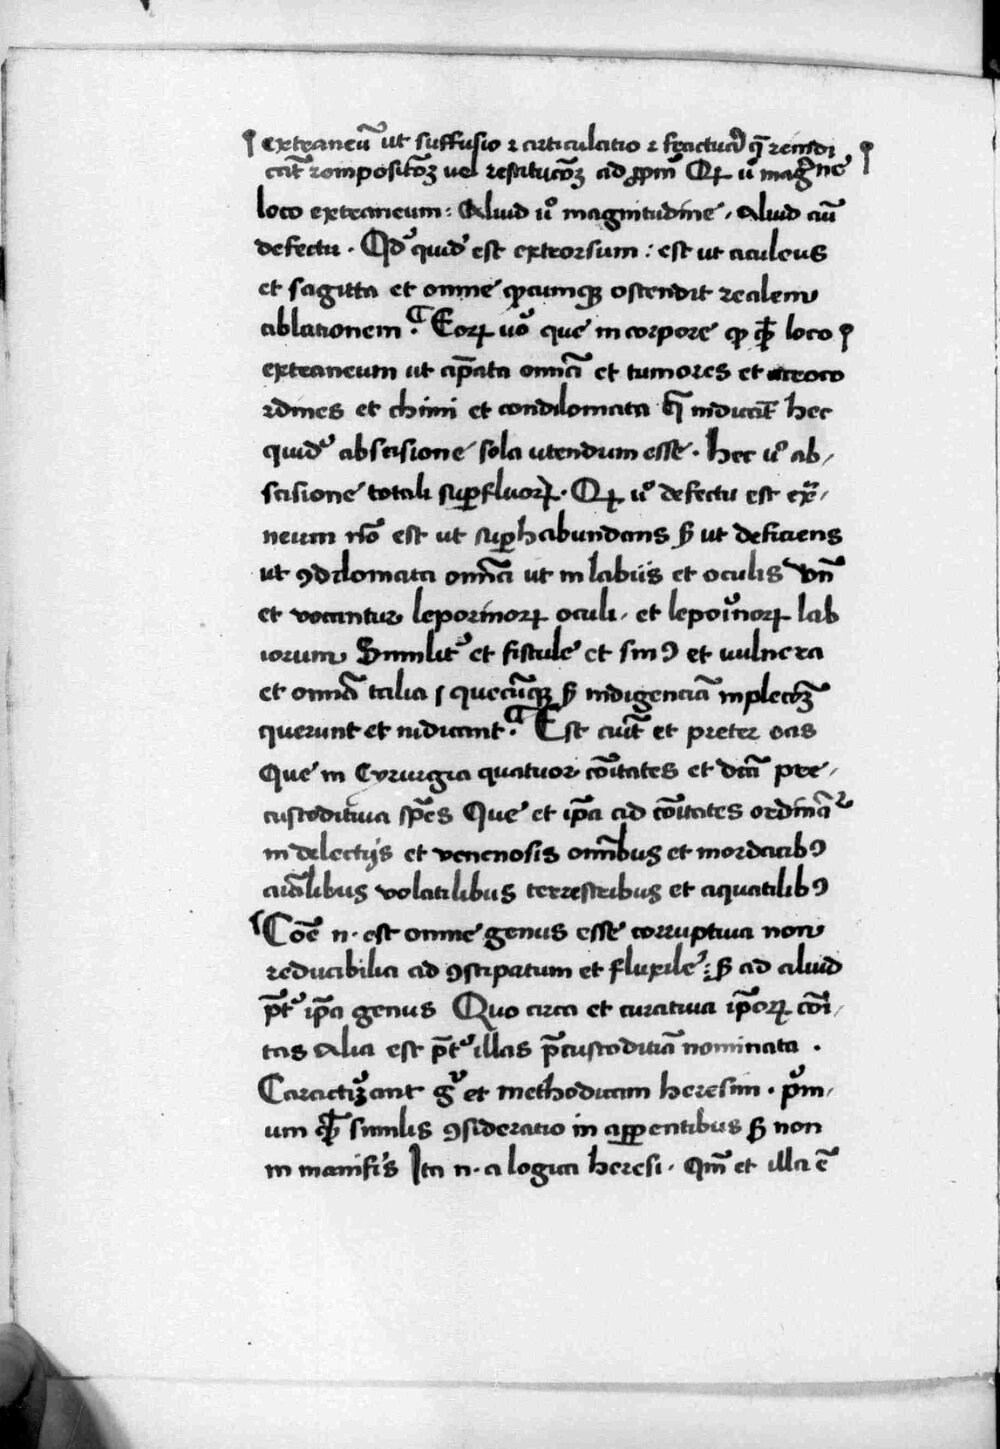 extraneū ut suffusio ⁊ articulatio ⁊ fractura q̄ reindi
cāt compositōꝫ vel restitutōꝫ ad ꝓpm̄ Qꝝ ũo magnę
loco extraneum : Aliud ũo magnitudine / Aliud aũ
defectu . Qd̓ quid̓ est extrorsum : est ut aculeus
et sagitta et omne qcumqꝫ ostendit realem
ablationem . Eoꝝ ũo que in corpore loco
extraneum ut apata omĩa et tumores et
et chimi et condilomata indicāt hec
quid̓ abscisione sola utendum esse . hec ũo ab/
scisione totali suꝑfluoꝝ . Qꝝ ũo defectu est ex̃/
neum nõ est ut suꝑhabundans s̄ ut deficiens
ut ꝯdilomata omĩa ut in labiis et oculis Vñ
et vocantur leporinoꝝ oculi / et lepoĩnoꝝ lab
iorum Similit̓ et fistule et sinꝰ et vulnera
et omĩa talia / quecũqꝫ s̄ indigenciã inpletōꝫ
querunt et indicant . Est autẽ et preter eas
Que in Cyrurgia quatuor cõitates et dcã pre/
custoditiua sp̄es Que et ip̄a ad cõitates ordinat̃
in delectiis et venenosis omĩbus et mordacibꝰ
aĩalibus volatilibus terrestribus et aquatilibꝰ
Coẽ n . est omne genus esse corruptiua non
reducibilia ad ꝯstipatum et fluxile : s̄ ad aliud
p̄t̓ ip̄a genus Quo circa et curatiua ip̄oꝝ cõi/
tas alia est p̄t̓ illas p̄custoditiã nominata .
Caractiꝫant g̓ et methodicam heresim . p̓m/
um similis ꝯsideratio in apparentibus s̄ non
in manifis̄ Ita n . a logica heresi . qm̃ et illa ē